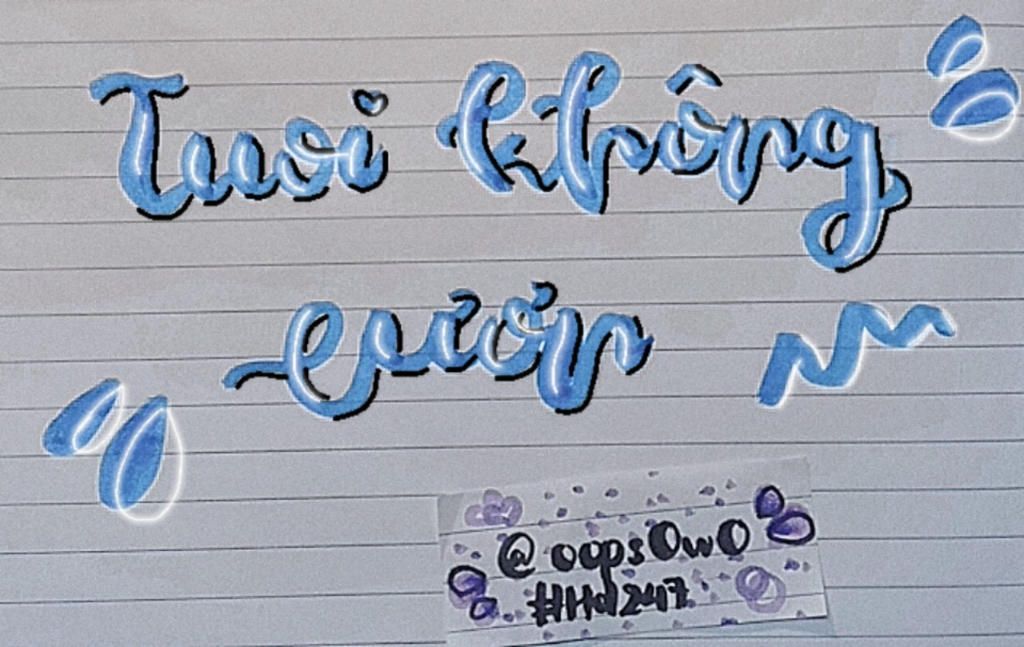 Tuoi không
lươn
@oopsOwO
#Hd247